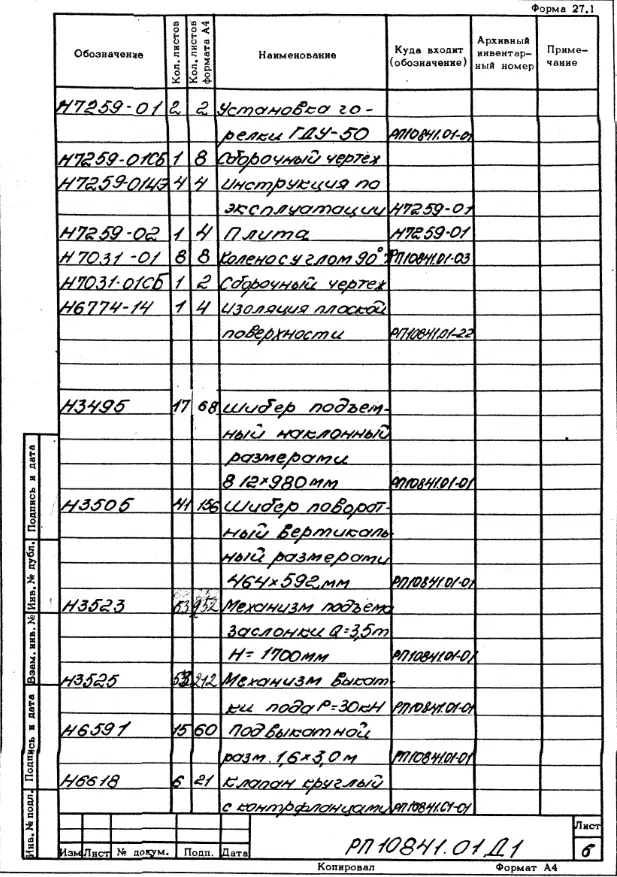 Форма 27.1
Обозначение Кол. листов Кол. листов формата А4 Наименование Куда входит (обозначение) Архивный инвентарный номер Примечание
Н7259-01 2 2 Установка го-
релки ГДУ-50 РП10841.01-01
Н7259-01СБ 1 8 Сборочный чертёж
Н7259-01ИЭ 4 4 Инструкция по
эксплуатации Н7259-01
Н7259-02 1 4 Плита Н7259-01
Н7031-01 8 8 Колено с углом 90° РП10841.01-03
Н7031-01СБ 1 2 Сборочный чертеж
Н6774-14 1 4 Изоляция плоской
поверхности РП10841.01-22
Н3495 17 68 Шибер подъем-
ный наклонный
размерами
812×980 мм РП10841.01-01
Н3505 41 156 Шибер поворот-
ный вертикаль
ный размерами
464×592 мм РП10841.01-01
Н3523 53 Механизм подъема
заслонки Q=3,5т
Н=1700мм РП10841.01-01
Н3525 53 212 Механизм выкат-
ки пода Р=30кН РП10841.01-01
Н6591 15 60 Под выкатной
разм. 1,6×3,0 м РП10841.01-01
Н6618 6 21 Клапан круглый
с контрфланцами РП10841.01-01
Подпись и дата
Инв. № дубл.
Взам. инв. №
Подпись и дата
Инв. № подл.
Изм Лист № докум. Подп. Дата
РП10841.01Д1
Лист
6
Копировал Формат А4